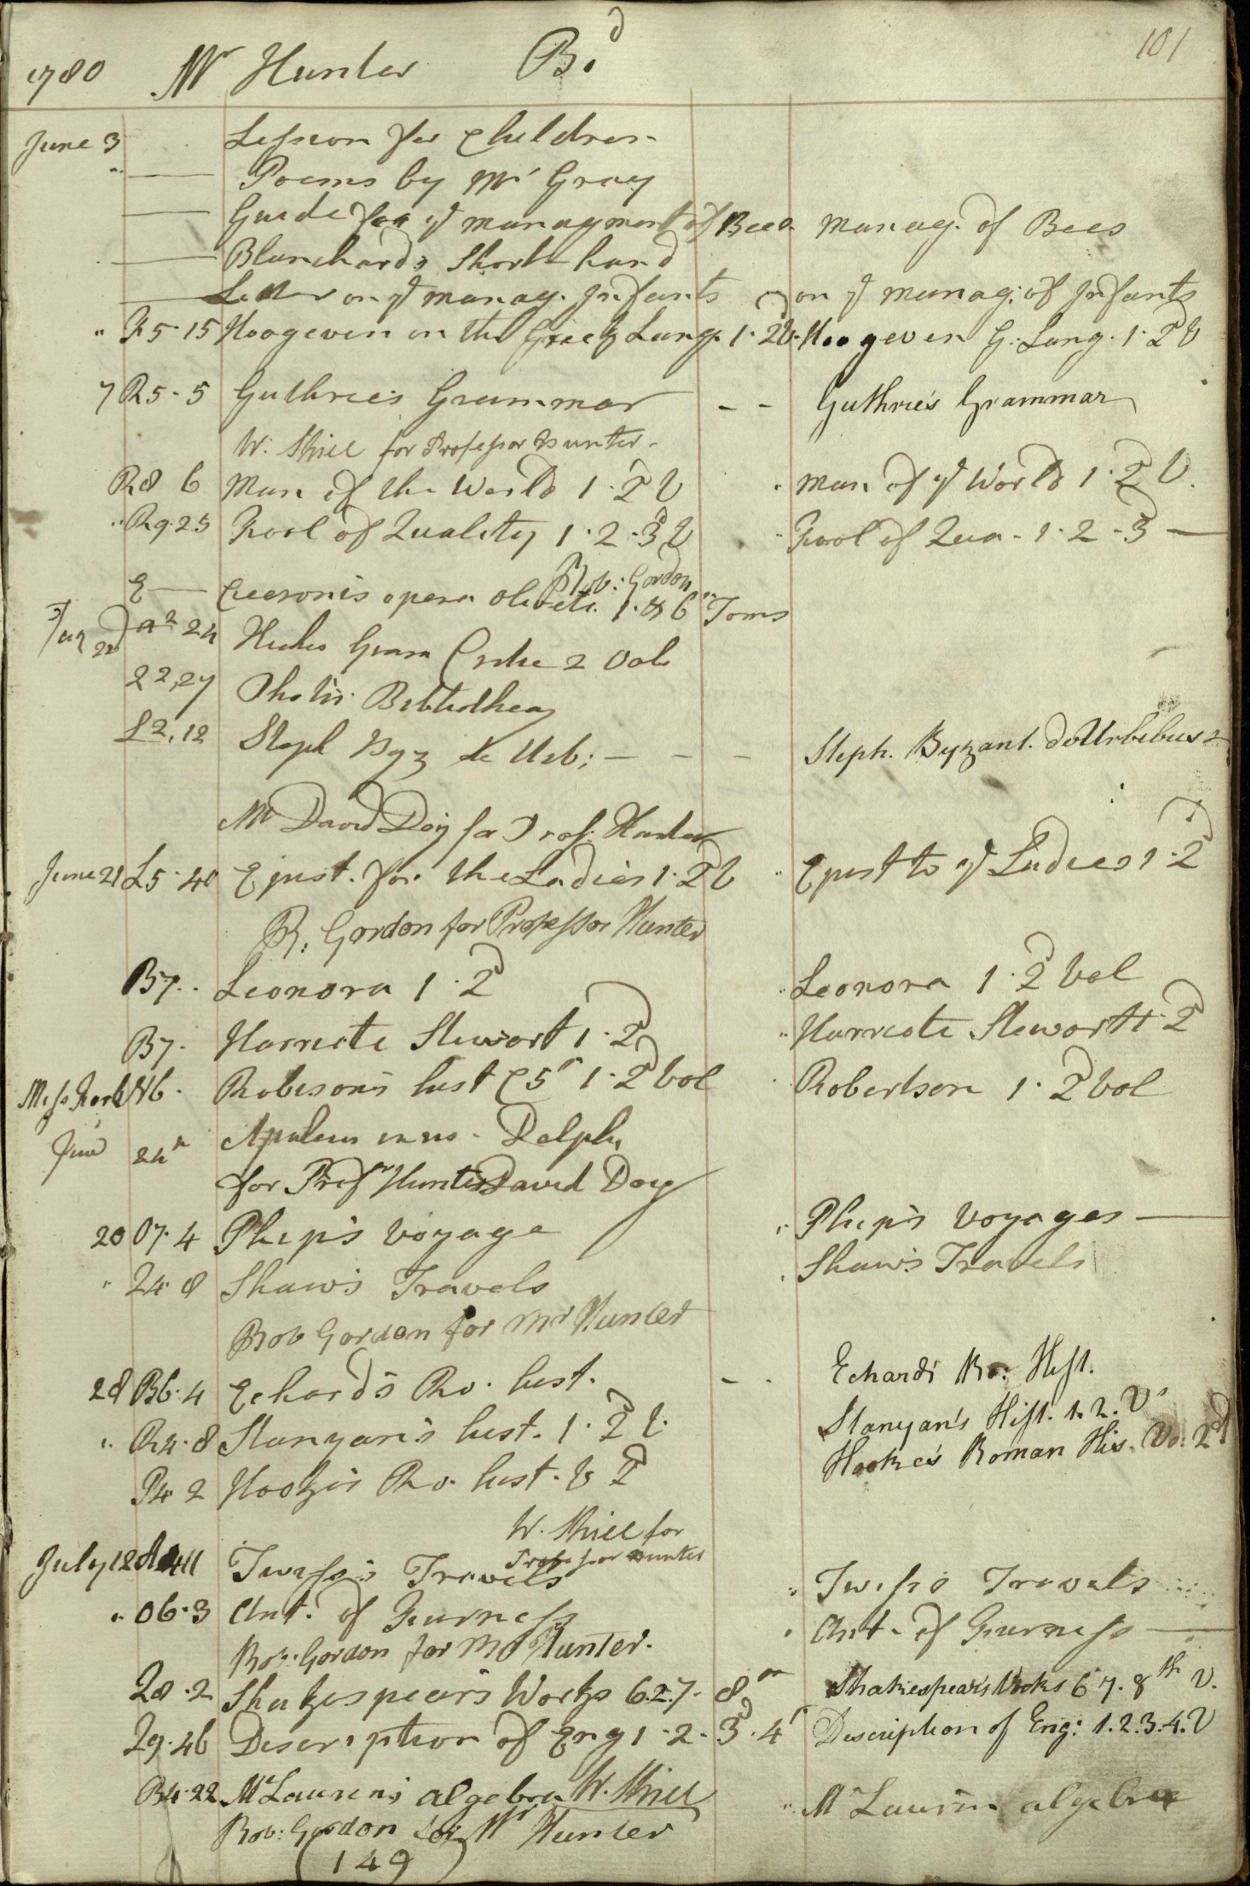 101
1780 Mr Hunter B.d
June 3 Lesson for Children
" — Poems by Mr Gray
— Guide for ye managment of Bees Manag. of Bees
— Blanchards Short hand
— Letter on ye manag. Infants on ye manag: of Infants
" F5·15 Hoogeven on the Greek Lang. 1·2d V. Hoogeven G. Lang. 1·2d V
7 R5·5 Guthrie's Grammar - - Guthrie's Grammar
W. Shiell for Professor Hunter.
R8 6 Man of the World 1·2d V " Man of ye World 1·2d V.
" R9·25 Fool of Quality 1·2·3d V " Fool of Qua. 1·2·3d —
Rob: Gordon
E — Ciceronis opera oliveti. 1. & 6th Toms
22d 24 Hickes Gram 2 Vols
22,27 Photii Bibliotheca
L2,12 Steph Byz de Urb: — - - Steph. Byzant. de Urbibus
Mr David Doig for Prof. Hunter
June 21 L5·40 Epist. for the Ladies 1·2d V " Epist to ye Ladies 1·2d
R. Gordon for Professor Hunter
B7·· Leonora 1·2d " Leonora 1·2d Vol
B7· Harriote Stewart 1·2d " Harriote Stewart 1·2d
Robison's hist C 5th 1·2d Vol Robertson 1·2d Vol
June 24th Apuleius in us. Delph.
for Profr Hunter David Doig
28 O7·4 Phip's Voyage " Phip's Voyages —
" 24·8 Shaw's Travels " Shaw's Travels
Rob Gordon for Mr Hunter
28 B6·4 Echard's Ro. hist. - - Echard's Ro: Hist.
" R4·8 Stanyan's hist. 1·2d V. Stanyan's Hist. 1. 2. V
P4 2 Hooke's Ro. hist. V 2d Hooke's Roman His. Vo. 2d
W. Shiell for
Professor Hunter
July 12 Twiss's Travels " Twiss's Travels
" O6·3 Ant. of Furness " Ant. of Furness —
Rob: Gordon for Mr Hunter.
28·2 Shakespear's Works 6.7. 8th Shakespear's Works 6 7. 8th V.
29·46 Description of Eng 1·2·3d·4th Description of Eng: 1.2.3.4. V
B4·22 McLaurin's algebra W. Shiell " McLaurin algebra
Rob: Gordon for Mr Hunter
(149)